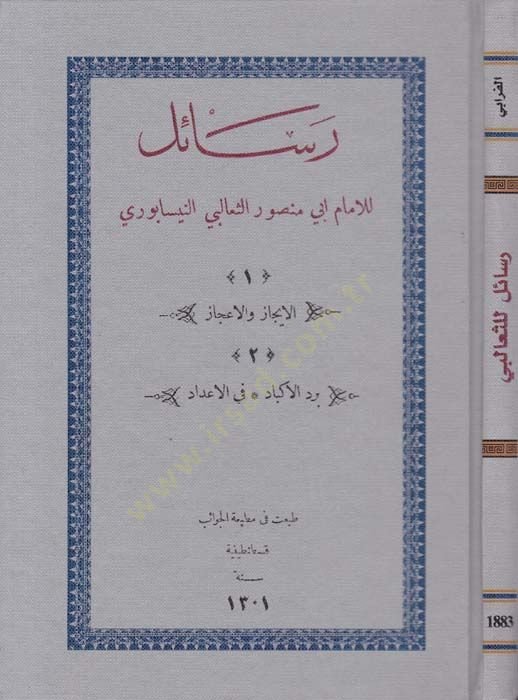 رسائل
للامام ابي منصور الثعالبي النيسابوري
﴿ ١ ﴾
الايجاز والاعجاز
﴿ ٢ ﴾
برد الاكباد * فى الاعداد
طبعت فى مطبعة الجوائب
قسطنطينية
سنة
١٣٠١
الفرابي
رسائل للثعالبي
1883
www.irssad.com.tr